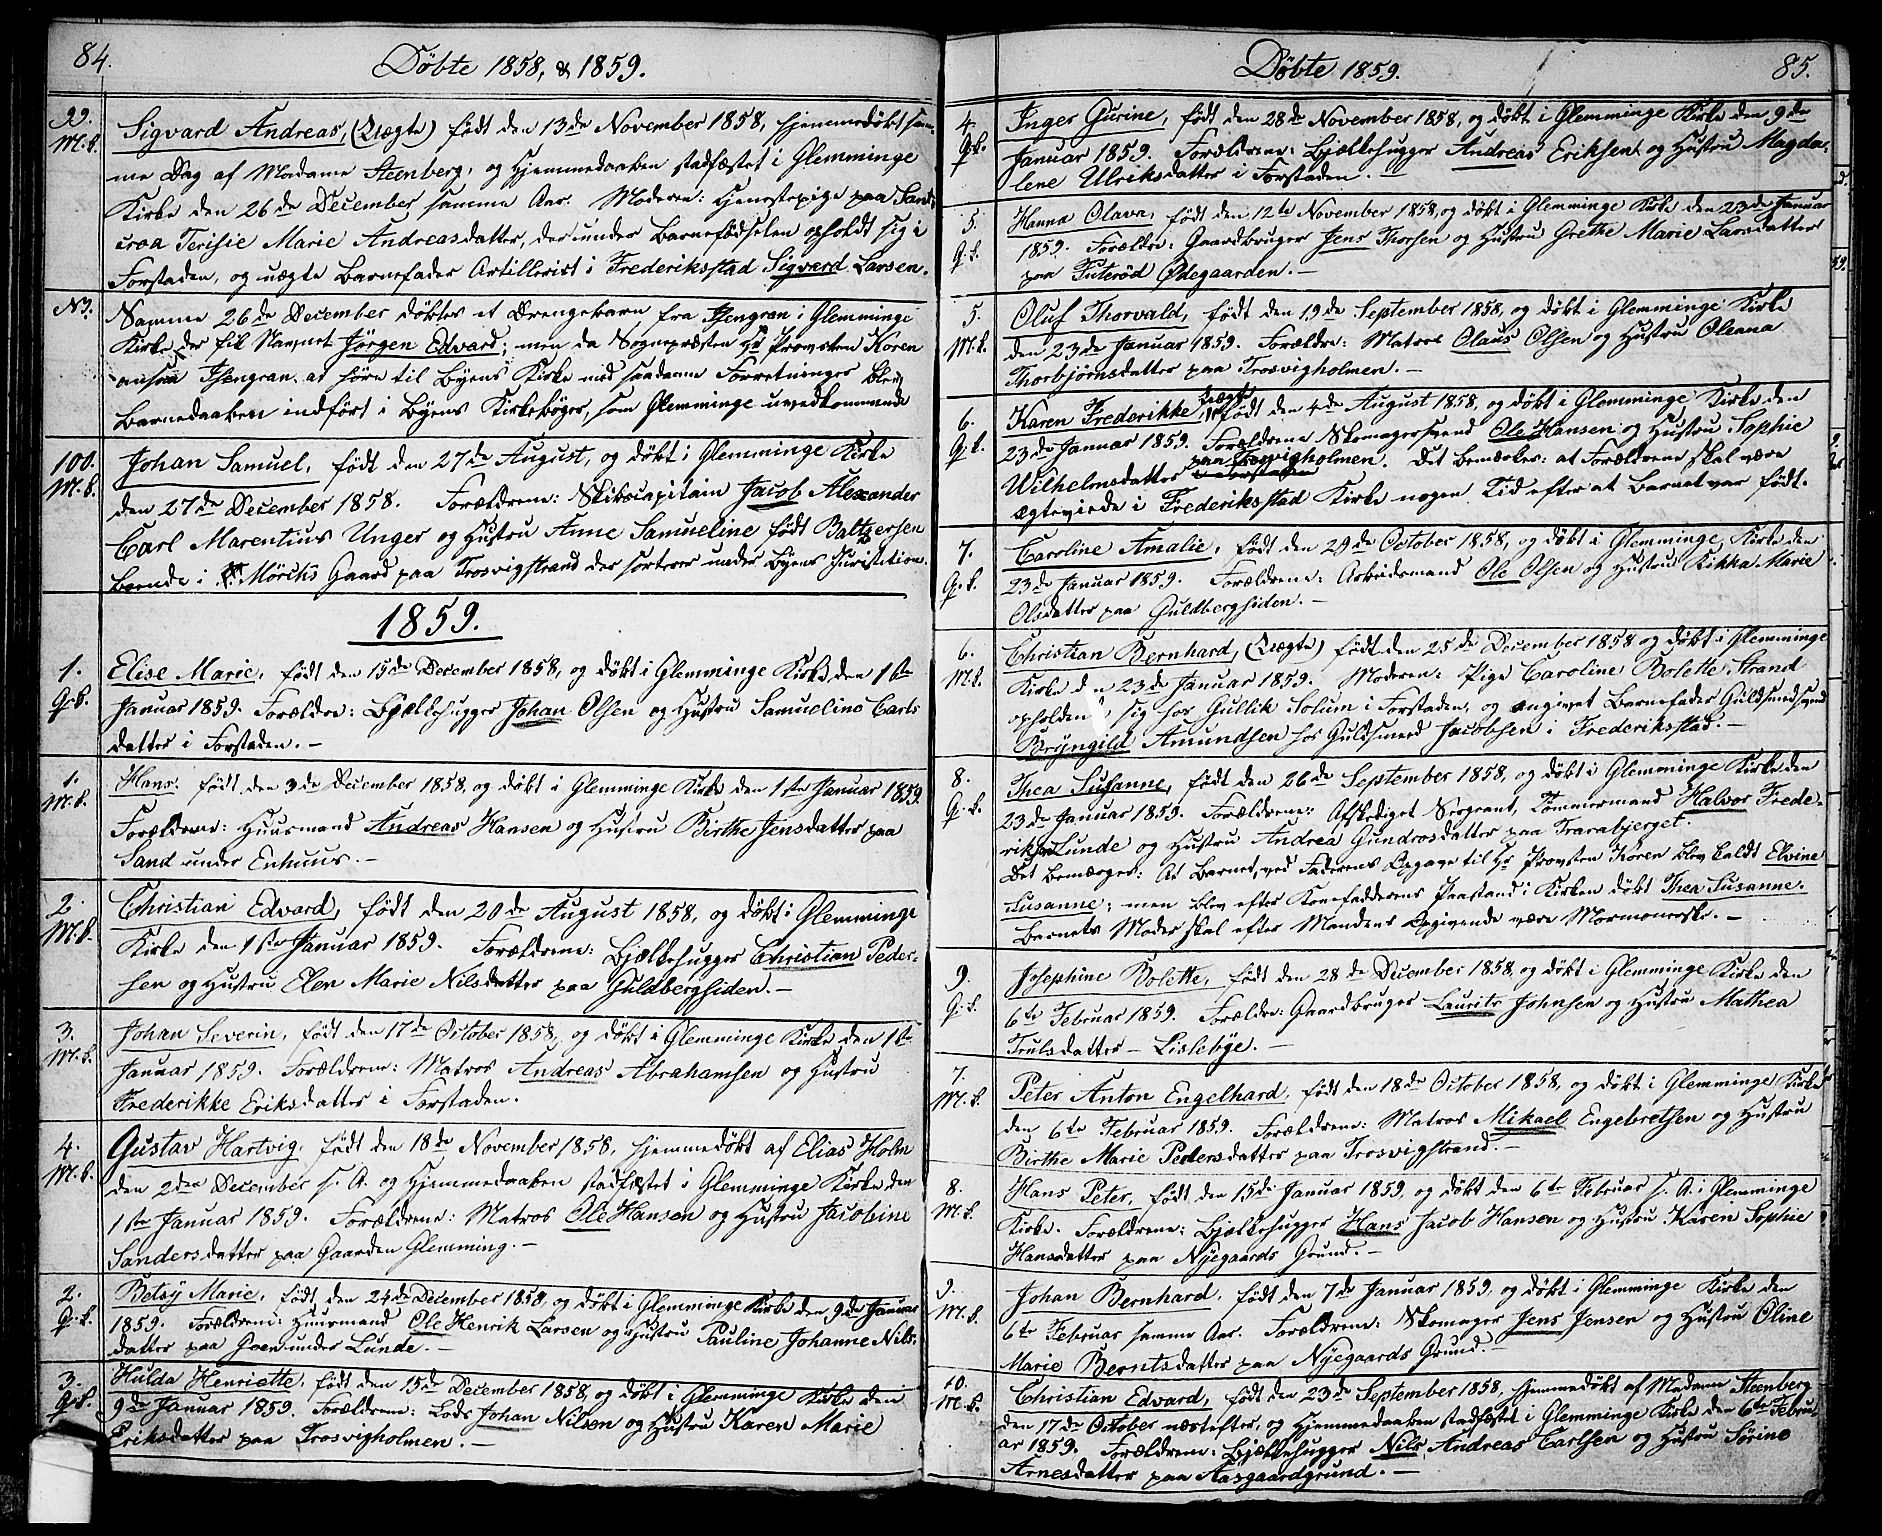 84.
Döbte 1858, & 1859.
99.
M.k.
Sigvard Andreas, (Uægte) født den 13de November 1858, hjemmedøbt sam-
me Dag af Madame Steenberg, og Hjemmedaaben stadfæstet i Glemminge
Kirke den 26de December samme Aar. Moderen: Tjenestepige paa
Terisie Marie Andreasdatter, der under Barnefødselen opholdt sig i
Forstaden, og uægte Barnefader Artillerist i Frederiksstad Sigvard Larsen.
NB.
Samme 26de December døbtes et Drengebarn fra Isengran i Glemminge
Kirke der fik Navnet Jörgen Edvard; men da Sognepræsten Hr Provsten Koren
ansaa Isengran at høre til Byens Kirke med saadanne Forretninger blev
Barnedaaben indført i Byens Kirkebøger, som Glemminge uvedkommende
100.
M.k.
Johan Samuel, født den 27de August, og døbt i Glemminge Kirke
den 27de December 1858. Forældrene: Skibscapitain Jacob Alexander
Carl Marentius Unger og Hustru Anne Samueline født Baltzersen
boende i Mörchs Gaard paa Trosvigstrand der sorterer under Byens Jurisdiction.
1859.
1.
Q.k.
Elise Marie, født den 15de December 1858, og døbt i Glemminge Kirke den 1ste
Januar 1859. Forældre: Bjælkehugger Johan Olsen og Hustru Samueline Carls
datter i Forstaden. -
1.
M.k.
Hans, født den 3de December 1858, og døbt i Glemminge Kirke den 1ste Januar 1859.
Forældrene: Huusmand Andreas Hansen og Hustru Birthe Jensdatter paa
Sand under Enhuus. -
2.
M.k.
Christian Edvard, født den 20de August 1858, og døbt i Glemminge
Kirke den 1ste Januar 1859. Forældrene: Bjælkehugger Christian Peder-
sen og Hustru Elen Marie Nilsdatter paa Guldbergsiden. -
3.
M.k.
Johan Severin, født den 17de October 1858, og døbt i Glemminge Kirke den 1ste
Januar 1859. Forældrene: Matros Andreas Abrahamsen og Hustru
Frederikke Eriksdatter i Forstaden.
4.
M.k.
Gustav Hartvig, født den 18de November 1858, hjemmedøbt af Elias Holm
den 2den December s. A. og Hjemmedaaben stadfæstet i Glemminge Kirke den
1ste Januar 1859. Forældrene: Matros Ole Hansen og Hustru Jacobine
Sandersdatter paa Gaarden Glemming. -
2.
Q.k.
Betsÿ Marie, født den 24de December 1858, og døbt i Glemminge Kirke den 9de Januar
1859. Forældrene: Huusmand Ole Henrik Larsen og Hustru Pauline Johanne Nils-
datter paa Moen under Lunde. -
3.
Q.k.
Hulda Henriette, født den 15de December 1858, og døbt i Glemminge Kirke den
9de Januar 1859. Forældrene: Lods Johan Nilsen og Hustru Karen Marie
Eriksdatter paa Trosvigholmen. -
Döbte 1859.
85.
4.
Q.k.
Inger Gurine, født den 28de November 1858, og døbt i Glemminge Kirke den 9de
Januar 1859. Forældrene: Bjælkehugger Andreas Eriksen og Hustru Magda-
lene Ulriksdatter i Forstaden. -
5.
Q.k.
Hanna Olava, født den 12te November 1858, og døbt i Glemminge Kirke den 23de Januar
1859. Forældre: Gaardbruger Jens Thorsen og Hustru Grethe Marie Larsdatter
paa Puterød Ødegaarden. -
5.
M.k.
Oluf Thorvald, født den 19de September 1858, og døbt i Glemminge Kirke
den 23de Januar 1859. Forældre: Matros Olaus Olsen og Hustru Oleana
Thorbjörnsdatter paa Trosvigholmen. -
6.
Q.k.
Karen Frederikke, Uægte født den 4de August 1858, og døbt i Glemminge Kirke den
23de Januar 1859. Forældrene Skomagersvend Ole Hansen og Hustru Sophie
Wilhelmsdatter i Forstaden paa Trosvigholmen. Det bemærkes: at Forældrene skal være
ægteviede i Frederiksstad Kirke nogen Tid efter at Barnet var født.
7.
Q.k.
Caroline Amalie, født den 29de October 1858, og døbt i Glemminge Kirke den
23de Januar 1859. Forældrene: Arbeidsmand Ole Olsen og Hustru Kikka Marie
Olsdatter paa Guldbergsiden. -
6.
M.k.
Christian Bernhard, (Uægte) født den 25de December 1858 og døbt i Glemminge
Kirke den 23de Januar 1859. Moderen: Pige Caroline Bolette Strand
opholdende sig hos Gullik Solum i Forstaden, og angivet Barnefader Guldsmedsvend
Bryngild Amundsen hos Guldsmed Jacobsen i Frederiksstad. -
8.
Q.k.
Thea Susanne, født den 26de September 1858, og døbt i Glemminge Kirke den
23de Januar 1859. Forældrene: Afskediget Sergeant, Tømmermand Halvor Frede-
riksen Lunde og Hustru Andrea Gundrosdatter paa Trarabjerget.
Det bemærkes: At Barnet, ved Faderens Opgave til Hr Provsten Koren blev kaldt Elvine
Susanne; men blev efter Konefadderens Paastand i Kirken døbt Thea Susanne.
Barnets Moder skal efter Mandens Opgivende være Mormonerske. -
9.
Q.k.
Josephine Bolette, født den 28de December 1858, og døbt i Glemminge Kirke den
6te Februar 1859. Forældre: Gaardbruger Laurits Johnsen og Hustru Mathea
Trulsdatter - Lislebÿe. -
7.
M.k.
Peter Anton Engelhard, født den 18de October 1858, og døbt i Glemminge Kirke
den 6te Februar 1859. Forældrene: Matros Mikael Engebretsen og Hustru
Birthe Marie Pedersdatter paa Trosvigstrand. -
8.
M.k.
Hans Peter, født den 15de Januar 1859, og døbt den 6te Februar s. A. i Glemminge
Kirke. Forældrene: Bjælkehugger Hans Jacob Hansen og Hustru Karen Sophie
Hansdatter paa Nÿegaards Grund. -
9.
M.k.
Johan Bernhard, født den 7de Januar 1859, og døbt i Glemminge Kirke den
6te Februar samme Aar. Forældrene: Skomager Jens Jensen og Hustru Oline
Marie Berntsdatter paa Nÿegaards Grund. -
10.
M.k.
Christian Edvard, født den 23de September 1858, hjemmedøbt af Madame Steenberg
den 17de October næstefter, og Hjemmedaaben stadfæstet i Glemminge Kirke den 6te Febru-
ar 1859. Forældrene: Bjælkehugger Nils Andreas Carlsen og Hustru Sørine
Arnesdatter paa Aasgaardgrund. -